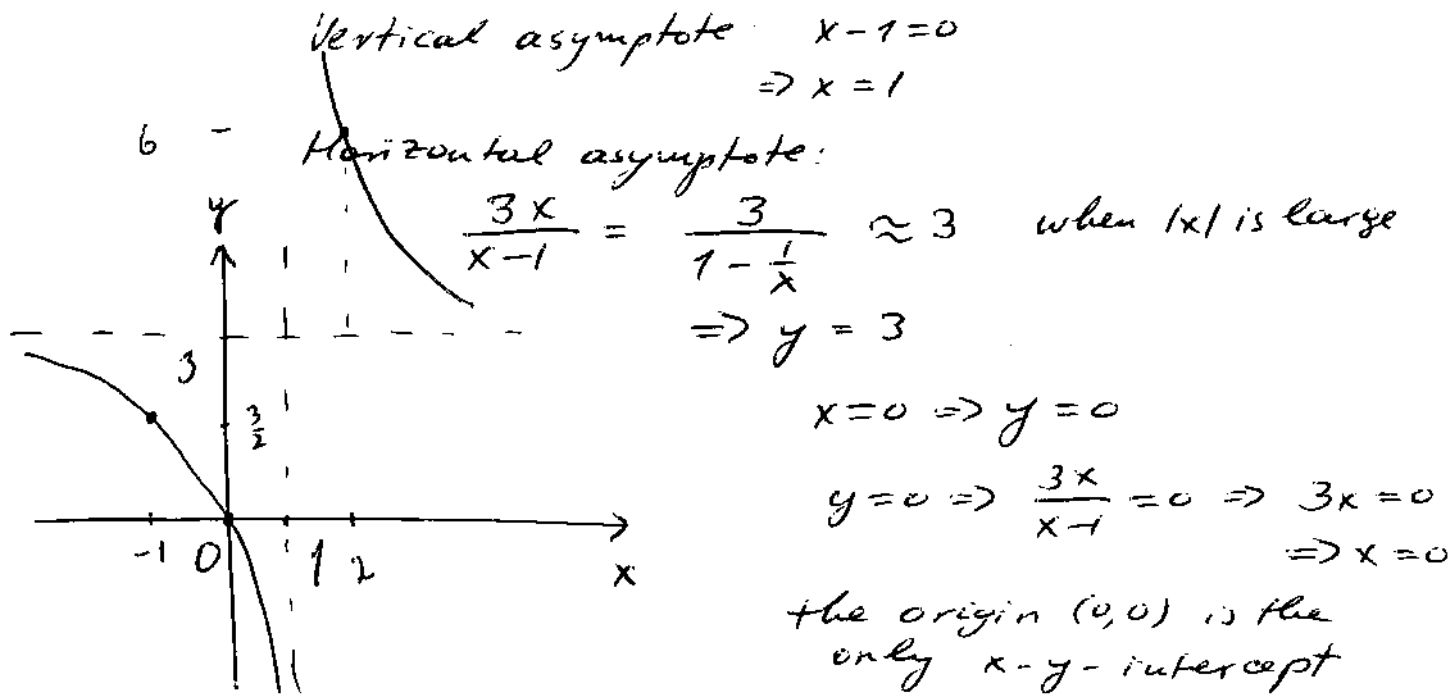 Vertical asymptote x-1=0
=> x = 1
6
Horizontal asymptote:
y
3x/(x-1) = 3/(1 - 1/x) ≈ 3 when |x| is large
=> y = 3
3
x=0 => y=0
3/2
y=0 => 3x/(x-1) = 0 => 3x=0
=> x=0
-1 0 1 2 x
the origin (0,0) is the
only x-y-intercept